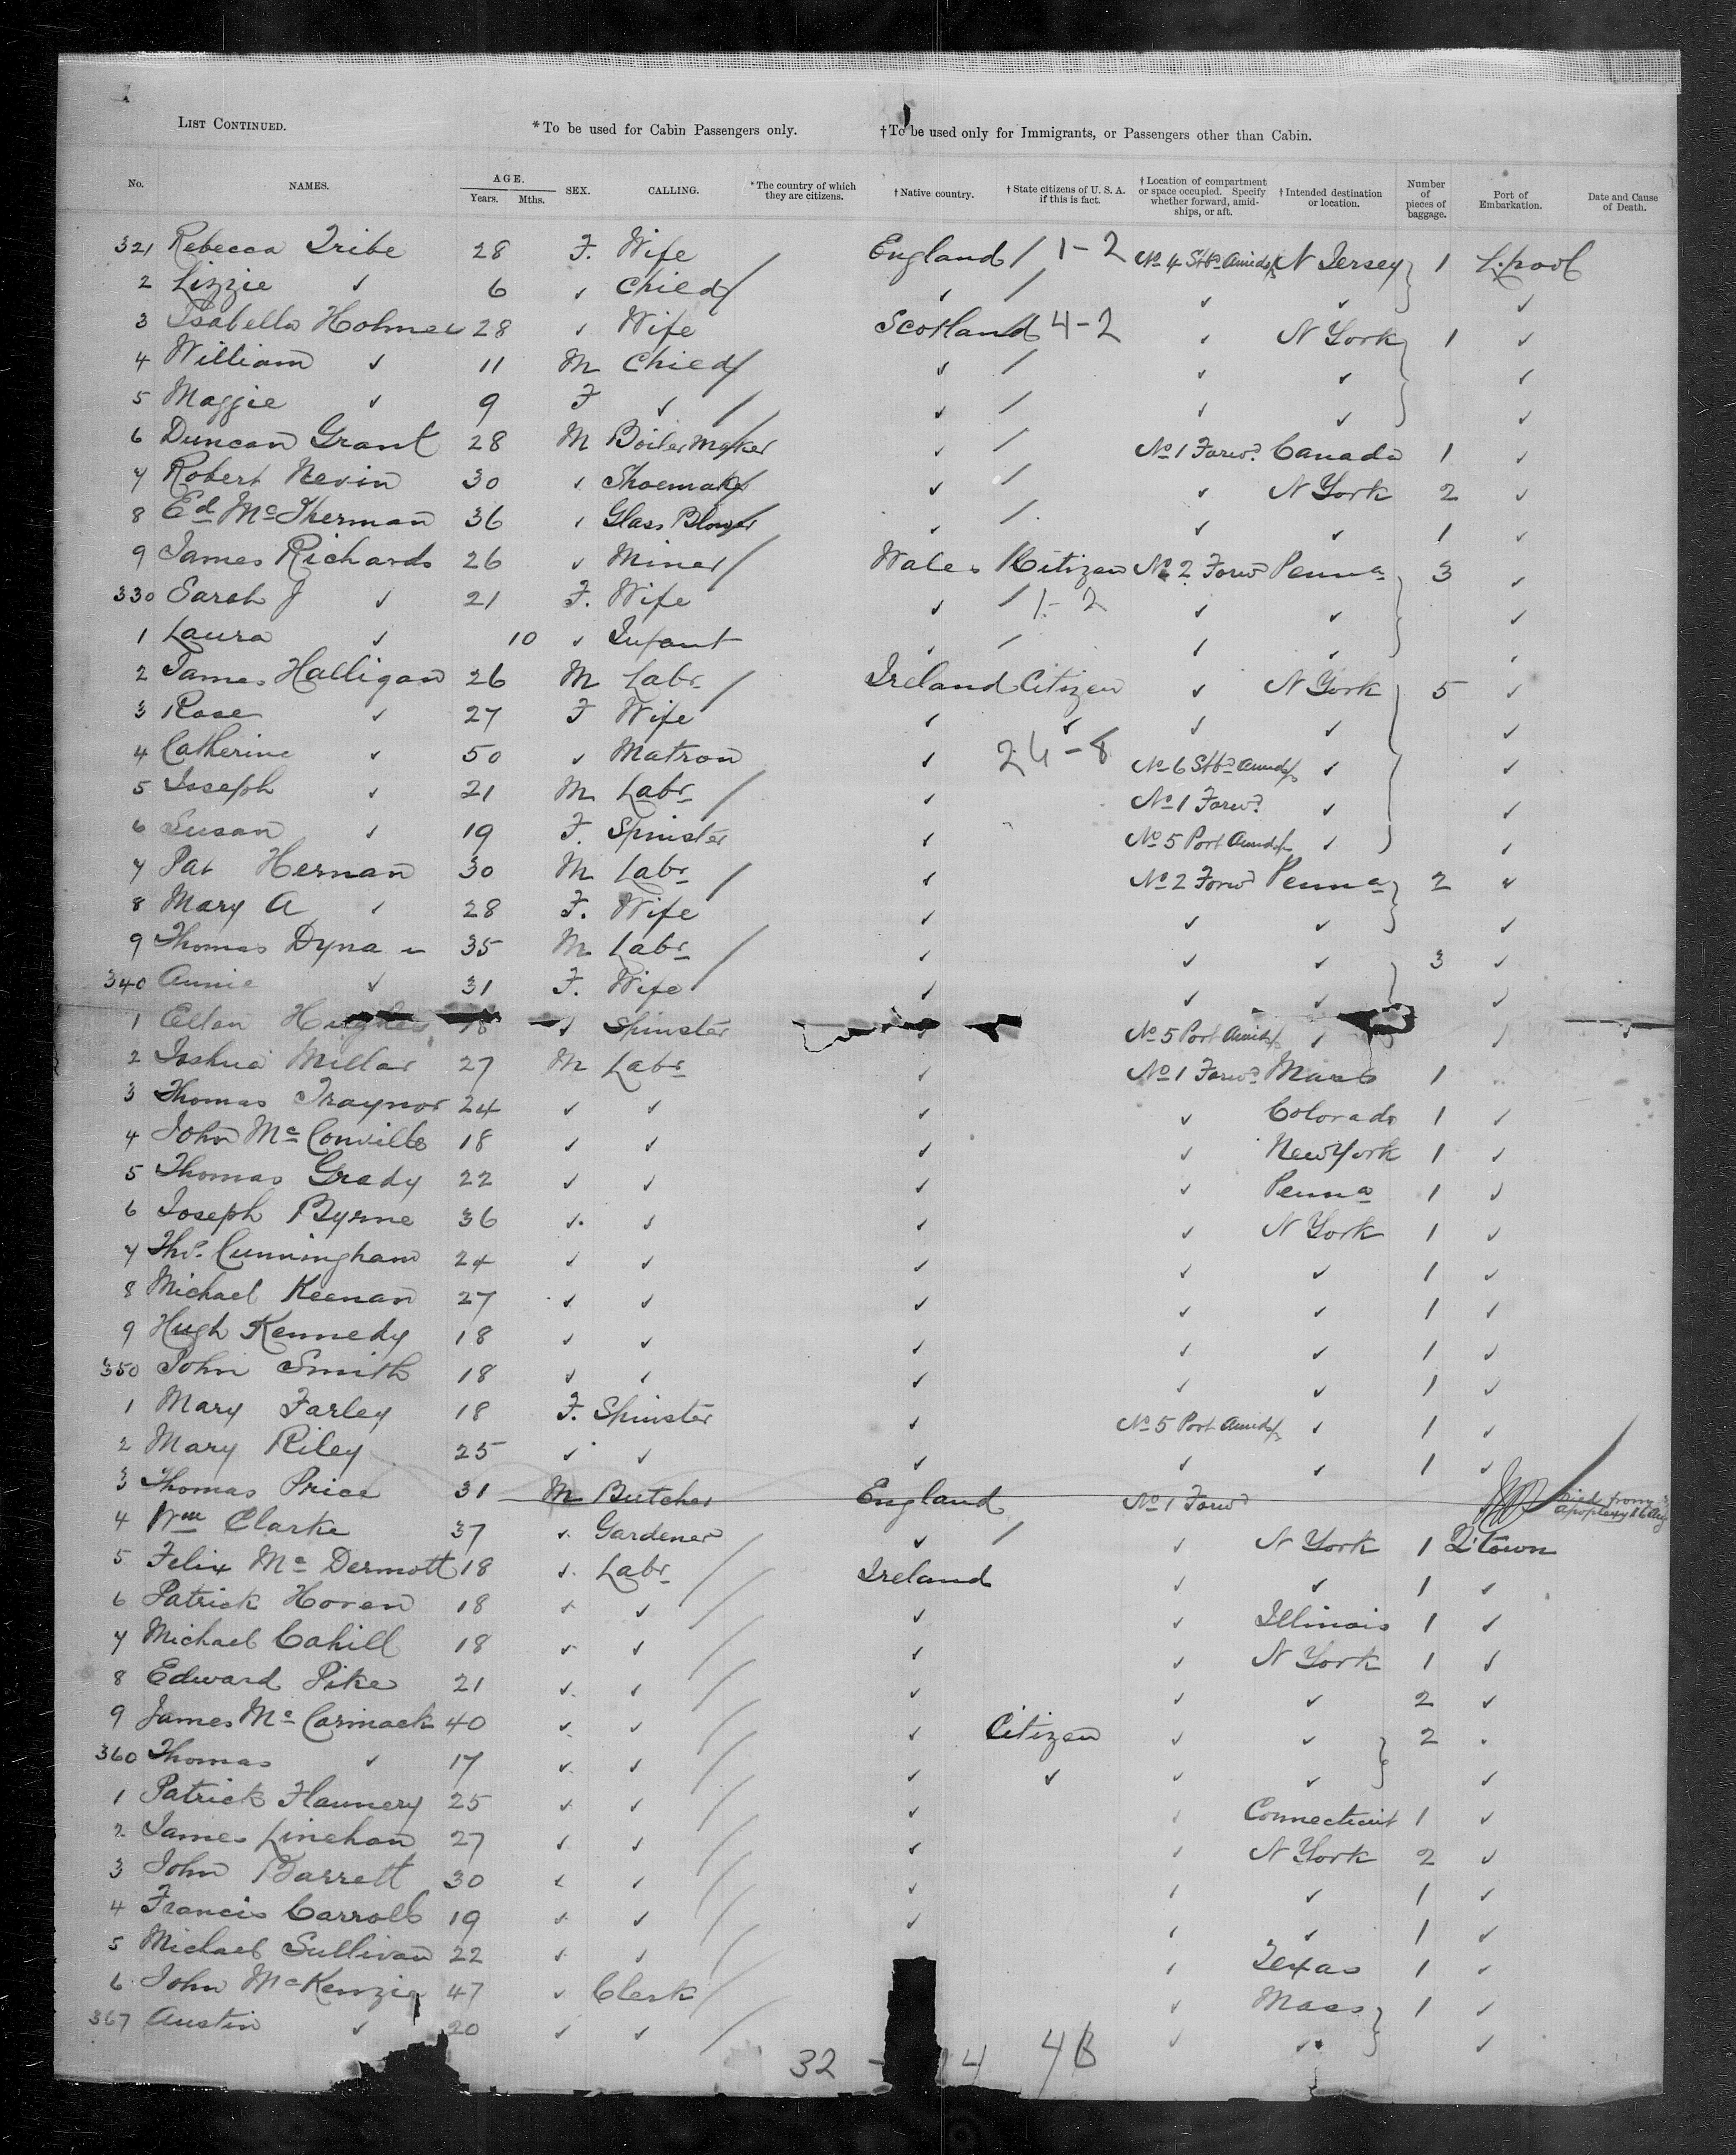 LIST CONTINUED. *To be used for Cabin Passengers only. †To be used only for Immigrants, or Passengers other than Cabin.
No. NAMES. AGE. Years. Mths. SEX. CALLING. *The country of which they are citizens. †Native country. †State citizens of U. S. A. if this is fact. †Location of compartment or space occupied. Specify whether forward, amidships, or aft. †Intended destination or location. Number of pieces of baggage. Port of Embarkation. Date and Cause of Death.
321 Rebecca Tribe 28 F. Wife England / 1-2 No 4 Stbd Amids N Jersey 1 L.pool
2 Lizzie ✓ 6 ✓ Child / ✓ / ✓ ✓ ✓
3 Isabella Holmes 28 ✓ Wife Scotland 4-2 ✓ N York 1 ✓
4 William ✓ 11 M Child / ✓ / ✓ ✓ ✓
5 Maggie ✓ 9 F ✓ / ✓ / ✓ ✓ ✓
6 Duncan Grant 28 M Boiler Maker ✓ / No 1 Forwd Canada 1 ✓
7 Robert Nevin 30 ✓ Shoemaker ✓ / ✓ N York 2 ✓
8 Ed McSherman 36 ✓ Glass Blower ✓ / ✓ ✓ 1 ✓
9 James Richards 26 ✓ Miner / Wales Citizen No 2 Forwd Penna 3 ✓
330 Sarah J ✓ 21 F. Wife ✓ / 1-2 ✓ ✓ ✓
1 Laura ✓ 10 ✓ Infant ✓ / ✓ ✓ ✓
2 James Halligan 26 M Labr / Ireland Citizen ✓ N York 5 ✓
3 Rose ✓ 27 F Wife ✓ ✓ ✓ ✓ ✓
4 Catherine ✓ 50 ✓ Matron ✓ 24-8 No 6 Stbd Amids ✓ ✓
5 Joseph ✓ 21 M Labr / ✓ No 1 Forwd ✓ ✓
6 Susan ✓ 19 F. Spinster ✓ No 5 Port Amids ✓ ✓
7 Pat Hernan 30 M Labr / ✓ No 2 Forwd Penna 2 ✓
8 Mary A ✓ 28 F. Wife ✓ ✓ ✓ ✓
9 Thomas Dynan 35 M Labr / ✓ ✓ ✓ 3 ✓
340 Annie ✓ 31 F. Wife ✓ ✓ ✓ ✓
1 Ellen Hughes 18 ✓ Spinster ✓ No 5 Port Amids ✓ ✓
2 Joshua Millar 27 M Labr ✓ No 1 Forwd Mass 1
3 Thomas Traynor 24 ✓ ✓ ✓ ✓ Colorado 1 ✓
4 John McConville 18 ✓ ✓ ✓ ✓ New York 1 ✓
5 Thomas Grady 22 ✓ ✓ ✓ ✓ Penna 1 ✓
6 Joseph Byrne 36 ✓ ✓ ✓ ✓ N York 1 ✓
7 Thos. Cunningham 24 ✓ ✓ ✓ ✓ ✓ 1 ✓
8 Michael Keenan 27 ✓ ✓ ✓ ✓ ✓ 1 ✓
9 Hugh Kennedy 18 ✓ ✓ ✓ ✓ ✓ 1 ✓
350 John Smith 18 ✓ ✓ ✓ ✓ ✓ 1 ✓
1 Mary Farley 18 F. Spinster ✓ No 5 Port Amids ✓ 1 ✓
2 Mary Riley 25 ✓ ✓ ✓ ✓ ✓ 1 ✓
3 Thomas Price 31 M Butcher England No 1 Forwd Died from Apoplexy 16 Aug
4 Wm Clarke 37 ✓ Gardener ✓ / ✓ N York 1 Q'town
5 Felix McDermott 18 ✓ Labr / Ireland ✓ ✓ 1 ✓
6 Patrick Horen 18 ✓ ✓ / ✓ ✓ Illinois 1 ✓
7 Michael Cahill 18 ✓ ✓ / ✓ ✓ N York 1 ✓
8 Edward Pike 21 ✓ ✓ / ✓ ✓ ✓ 2 ✓
9 James McCormack 40 ✓ ✓ / ✓ Citizen ✓ ✓ 2 ✓
360 Thomas ✓ 17 ✓ ✓ / ✓ ✓ ✓ ✓ ✓
1 Patrick Flannery 25 ✓ ✓ / ✓ ✓ Connecticut 1 ✓
2 James Linehan 27 ✓ ✓ / ✓ ✓ N York 2 ✓
3 John Barrett 30 ✓ ✓ / ✓ ✓ ✓ 1 ✓
4 Francis Carroll 19 ✓ ✓ / ✓ ✓ ✓ 1 ✓
5 Michael Sullivan 22 ✓ ✓ / ✓ Texas 1 ✓
6 John McKenzie 47 ✓ Clerk / ✓ Mass 1 ✓
367 Austin ✓ 20 ✓ ✓ / ✓ ✓ ✓
32 - 14